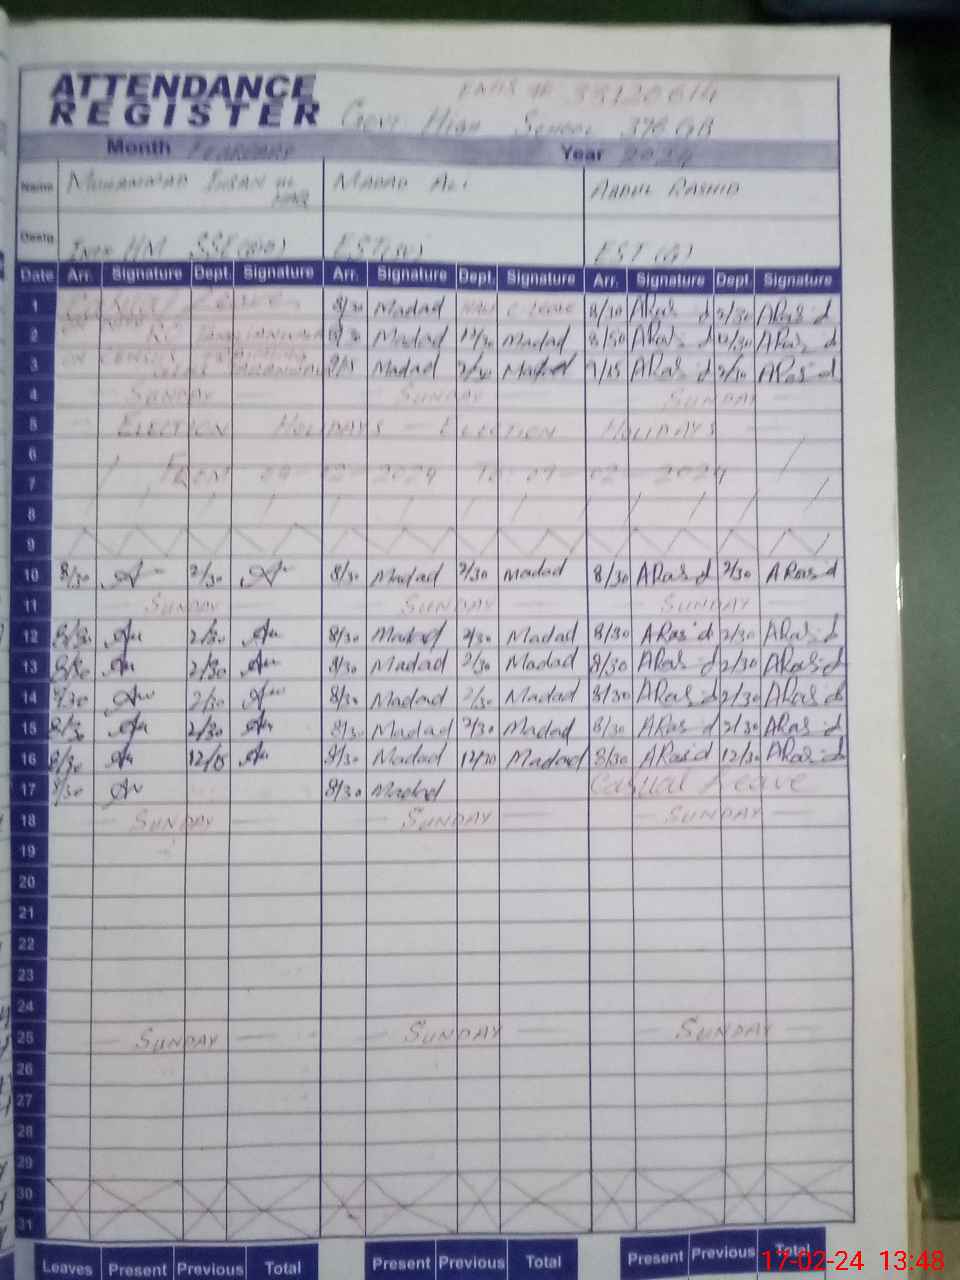 ATTENDANCE
REGISTER
Govt High School 376 GB
Month February Year 2024
Name Muhammad Ihsan ul Haq Madad Ali Abdul Rashid
Desig. HM SSE EST EST
Date Arr. Signature Dept. Signature Arr. Signature Dept. Signature Arr. Signature Dept. Signature
1 Casual Leave 8/30 Madad C. Leave 8/30 ARasid 2/30 ARasid
2 8/30 Madad 12/30 Madad 8/30 ARasid 12/30 ARasid
3 Madad 2/30 Madad ARasid 2/30 ARasid
4 Sunday Sunday Sunday
5 Election Holidays - Election Holidays
6
7 From 02 - 2024 To: 09 - 02 - 2024
8
9
10 8/30 2/30 8/30 Madad 2/30 Madad 8/30 ARasid 2/30 ARasid
11 Sunday Sunday Sunday
12 8/30 2/30 8/30 Madad 2/30 Madad 8/30 ARasid 2/30 ARasid
13 8/30 2/30 8/30 Madad 2/30 Madad 8/30 ARasid 2/30 ARasid
14 8/30 2/30 8/30 Madad 2/30 Madad 8/30 ARasid 2/30 ARasid
15 8/30 2/30 8/30 Madad 2/30 Madad 8/30 ARasid 2/30 ARasid
16 8/30 12/15 8/30 Madad 12/30 Madad 8/30 ARasid 12/30 ARasid
17 8/30 8/30 Madad Casual Leave
18 Sunday Sunday Sunday
19
20
21
22
23
24
25 Sunday Sunday Sunday
26
27
28
29
30
31
Leaves Present Previous Total Present Previous Total Present Previous Total
17-02-24 13:48